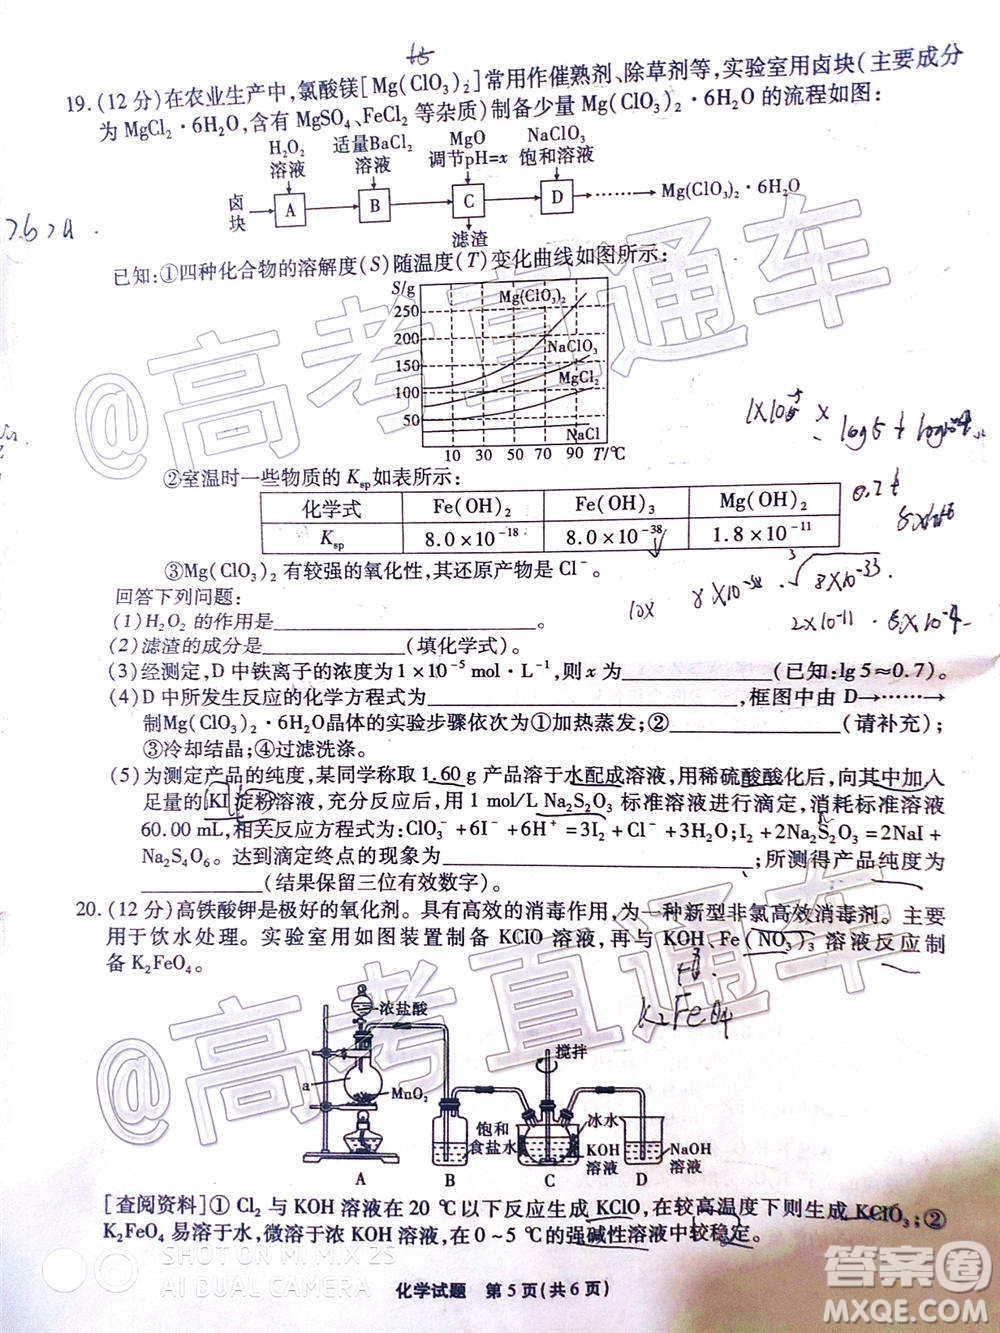 19.(12分)在农业生产中,氯酸镁[Mg(ClO₃)₂]常用作催熟剂、除草剂等,实验室用卤块(主要成分
为MgCl₂·6H₂O,含有MgSO₄、FeCl₂等杂质)制备少量Mg(ClO₃)₂·6H₂O的流程如图:
H₂O₂ 适量BaCl₂ MgO NaClO₃
溶液 溶液 调节pH=x 饱和溶液
卤块 A B C D …… Mg(ClO₃)₂·6H₂O
滤渣
7.6>4
已知:①四种化合物的溶解度(S)随温度(T)变化曲线如图所示:
S/g
250
200
150
100
50
Mg(ClO₃)₂
NaClO₃
MgCl₂
NaCl
10 30 50 70 90 T/℃
②室温时一些物质的Ksp如表所示:
化学式 Fe(OH)₂ Fe(OH)₃ Mg(OH)₂
Ksp 8.0×10⁻¹⁸ 8.0×10⁻³⁸ 1.8×10⁻¹¹
③Mg(ClO₃)₂有较强的氧化性,其还原产物是Cl⁻。
回答下列问题:
(1)H₂O₂的作用是____________。
(2)滤渣的成分是____________(填化学式)。
(3)经测定,D中铁离子的浓度为1×10⁻⁵ mol·L⁻¹,则x为____________(已知:lg5≈0.7)。
(4)D中所发生反应的化学方程式为____________,框图中由D→……→
制Mg(ClO₃)₂·6H₂O晶体的实验步骤依次为①加热蒸发;②____________(请补充);
③冷却结晶;④过滤洗涤。
(5)为测定产品的纯度,某同学称取1.60 g产品溶于水配成溶液,用稀硫酸酸化后,向其中加入
足量的KI淀粉溶液,充分反应后,用1 mol/L Na₂S₂O₃标准溶液进行滴定,消耗标准溶液
60.00 mL,相关反应方程式为:ClO₃⁻+6I⁻+6H⁺=3I₂+Cl⁻+3H₂O;I₂+2Na₂S₂O₃=2NaI+
Na₂S₄O₆。达到滴定终点的现象为____________;所测得产品纯度为
____________(结果保留三位有效数字)。
20.(12分)高铁酸钾是极好的氧化剂。具有高效的消毒作用,为一种新型非氯高效消毒剂。主要
用于饮水处理。实验室用如图装置制备KClO溶液,再与KOH、Fe(NO₃)₃溶液反应制
备K₂FeO₄。
K₂FeO₄
浓盐酸
搅拌
a
MnO₂
饱和食盐水
冰水
KOH溶液
NaOH溶液
A B C D
[查阅资料]①Cl₂与KOH溶液在20 ℃以下反应生成KClO,在较高温度下则生成KClO₃;②
K₂FeO₄易溶于水,微溶于浓KOH溶液,在0~5 ℃的强碱性溶液中较稳定。
SHOT ON MI MIX 2S
AI DUAL CAMERA
化学试题 第5页(共6页)
@高考直通车
@高考直通车
答案圈
MXQE.COM